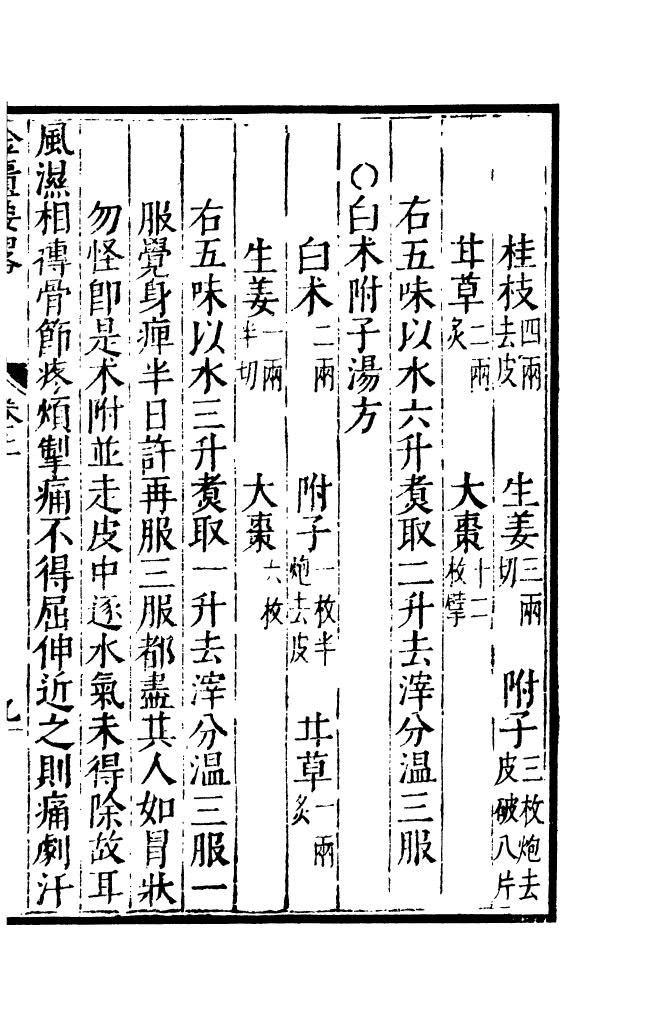 桂枝四兩去皮　生姜三兩切　附子三枚炮去皮破八片
甘草二兩炙　大棗十二枚擘
右五味以水六升煑取二升去滓分溫三服
〇白朮附子湯方
白朮二兩　附子一枚半炮去皮　甘草一兩炙
生姜一兩半切　大棗六枚
右五味以水三升煑取一升去滓分溫三服一
服覺身痺半日許再服三服都盡其人如冒狀
勿怪卽是朮附並走皮中逐水氣未得除故耳
風濕相摶骨節疼煩掣痛不得屈伸近之則痛劇汗
金匱要畧　卷上　九